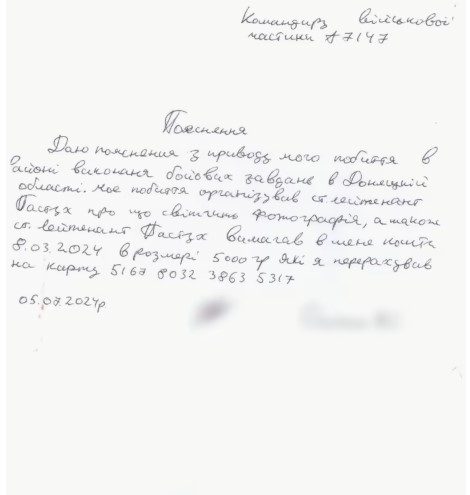 Командиру військової
частини А7147
Пояснення
Даю пояснення з приводу мого побиття в
районі виконаня бойових завдань в Донецькій
області. Моє побиття організував ст лейтенант
Пастух про що свідчить фотографія, а також
ст. лейтенант Пастух вимагав в мене кошти
8.03.2024 в розмірі 5000 гр які я перерахував
на карту 5167 8032 3863 5317
05.07.2024р